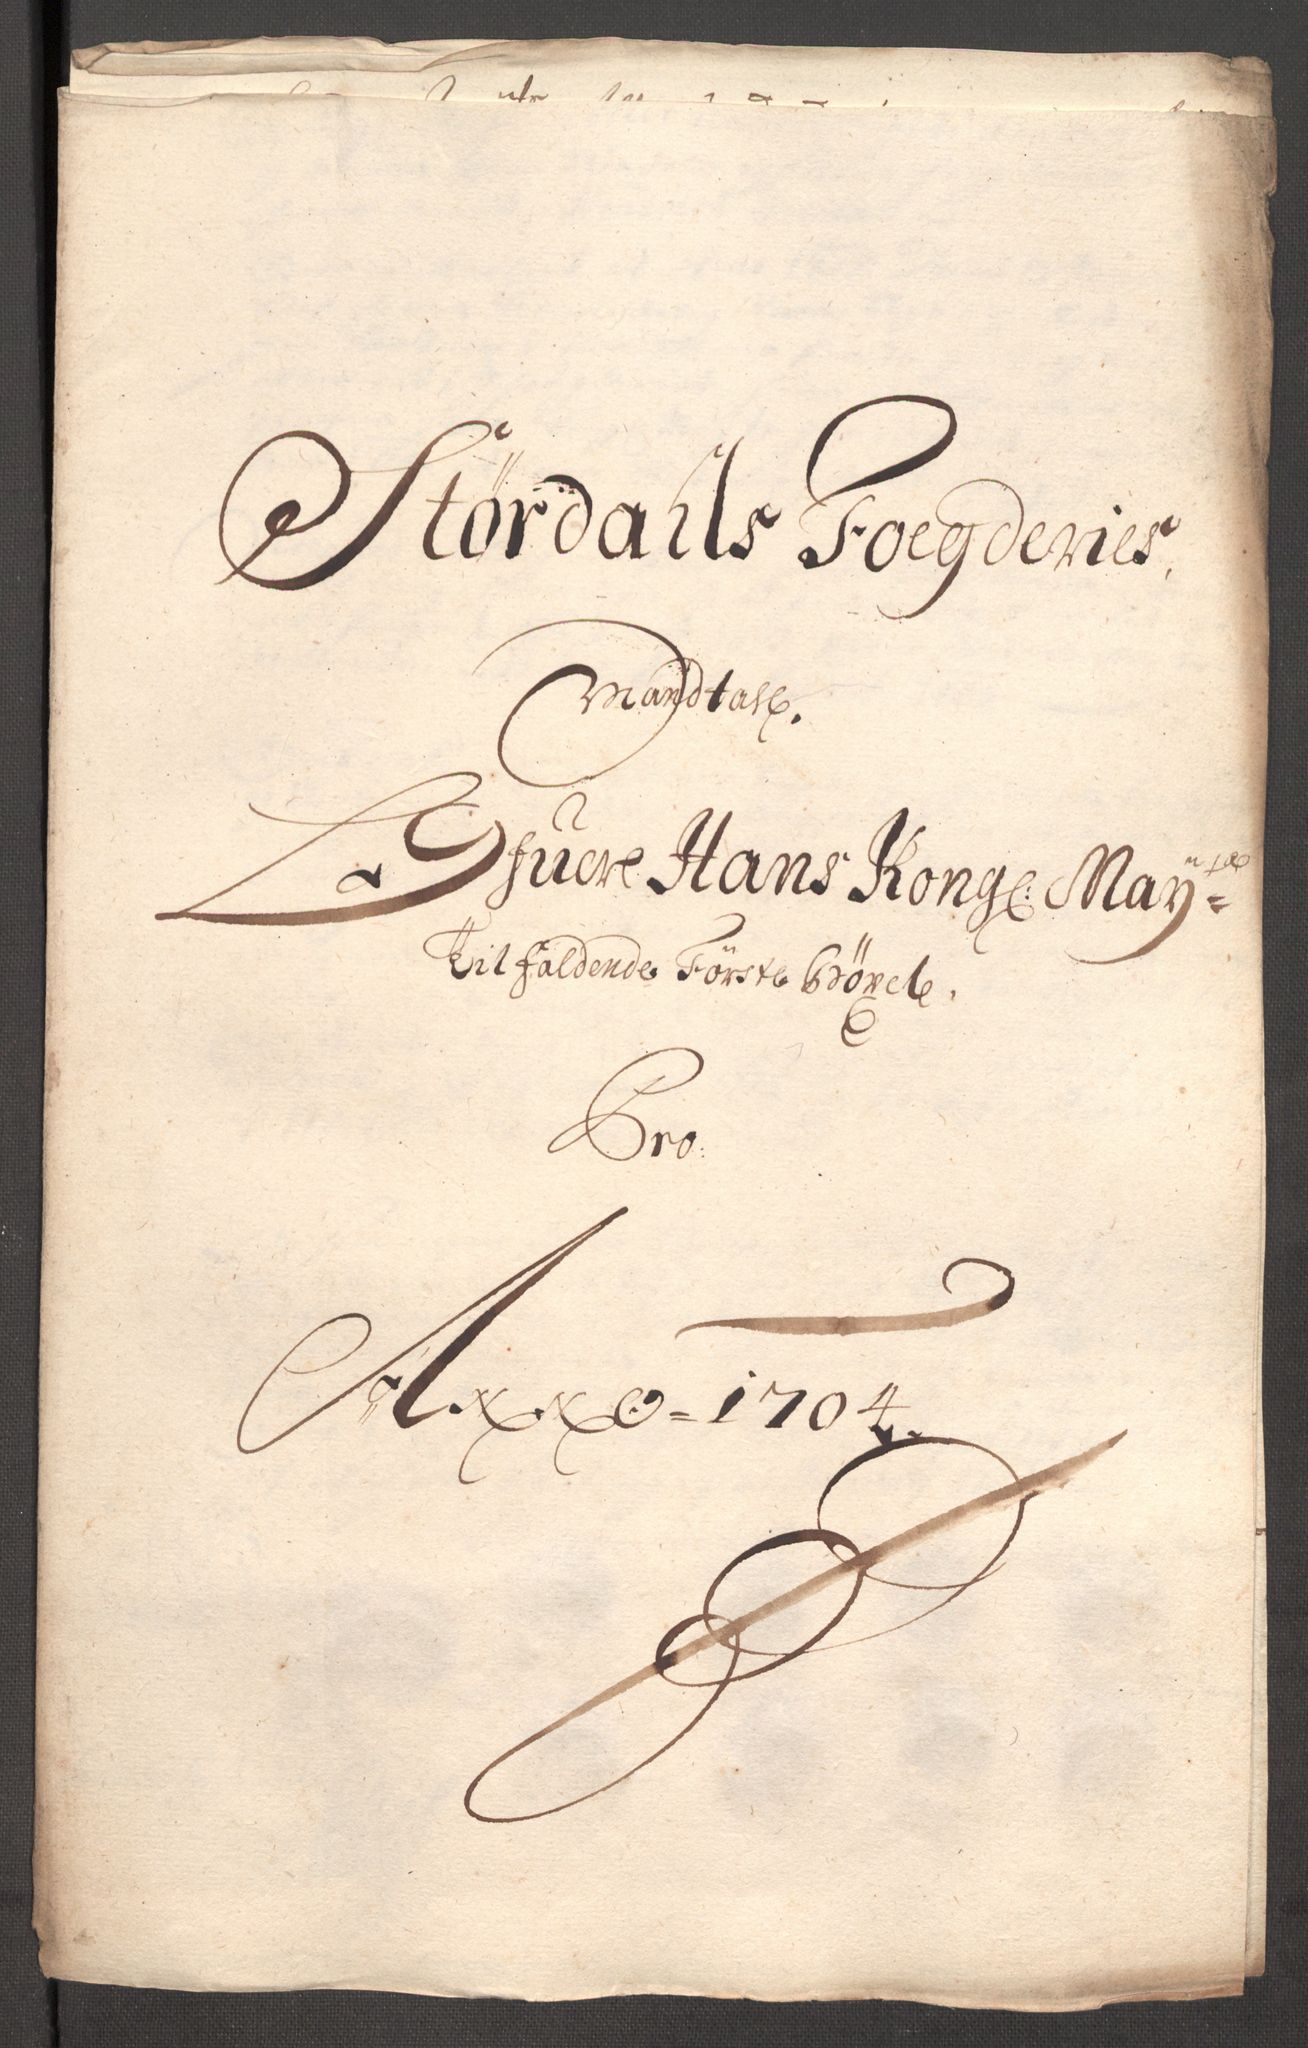 Størdahls Foegderies
Mandtall.
Ofuer Hans Kongl: Mayts
Tilfaldende Første Bøxel.
Pro:
Anno = 1704.